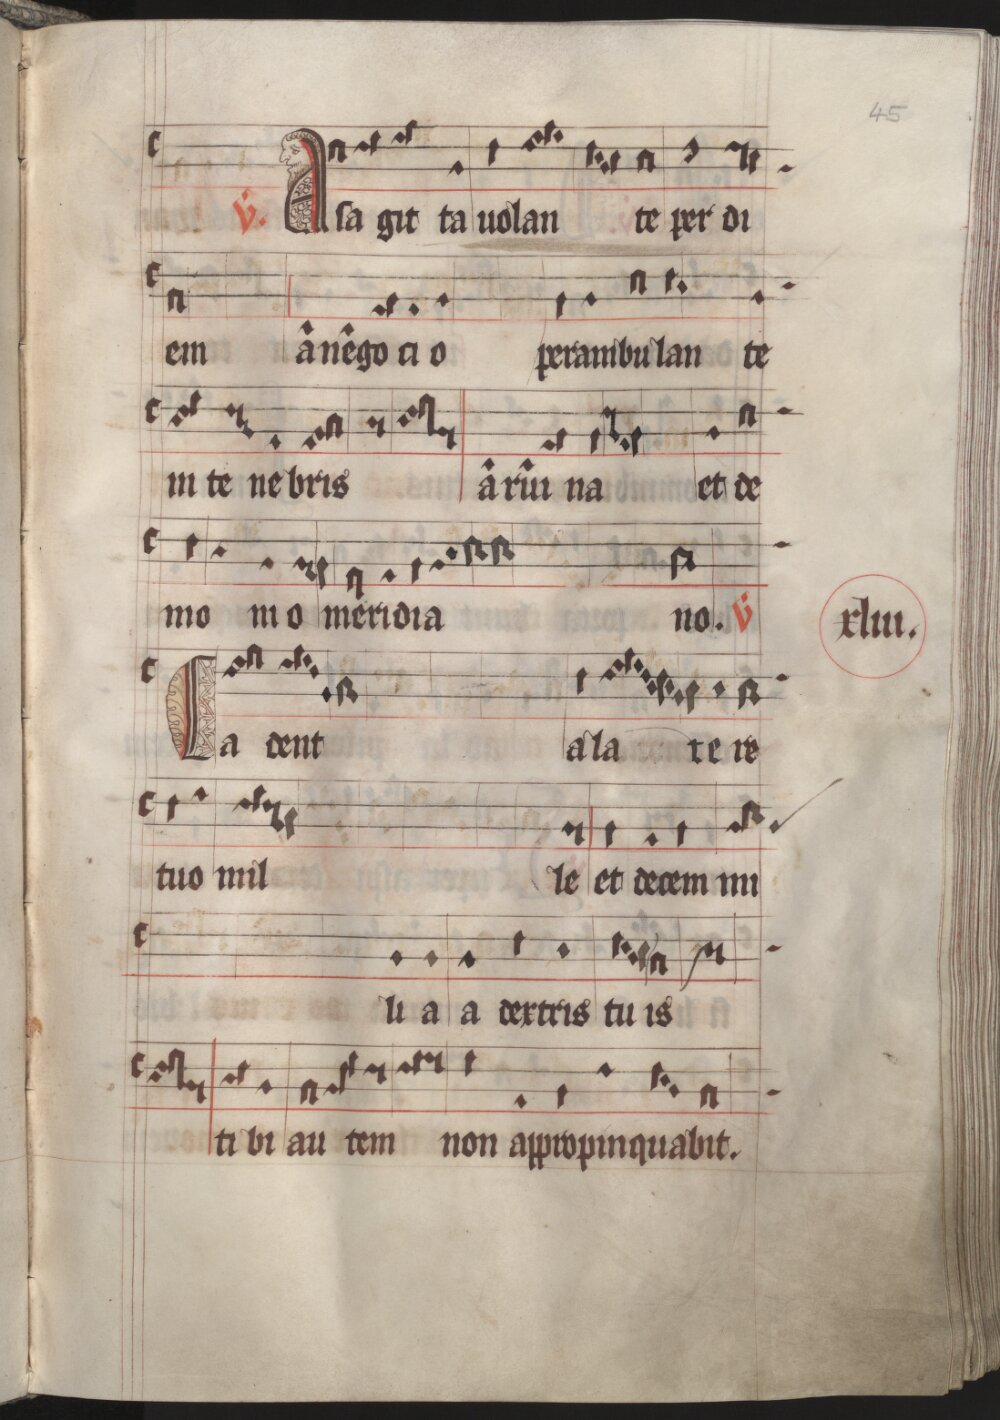 45
V. A sa git ta uolan te per di
em a nego ci o perambulan te
in te ne bris a ruı na et de
mo ni o meridia no. V
xliii.
Ca dent a la te re
tuo mil le et decem mi
li a a dextris tu is
ti bi au tem non appropinquabit.